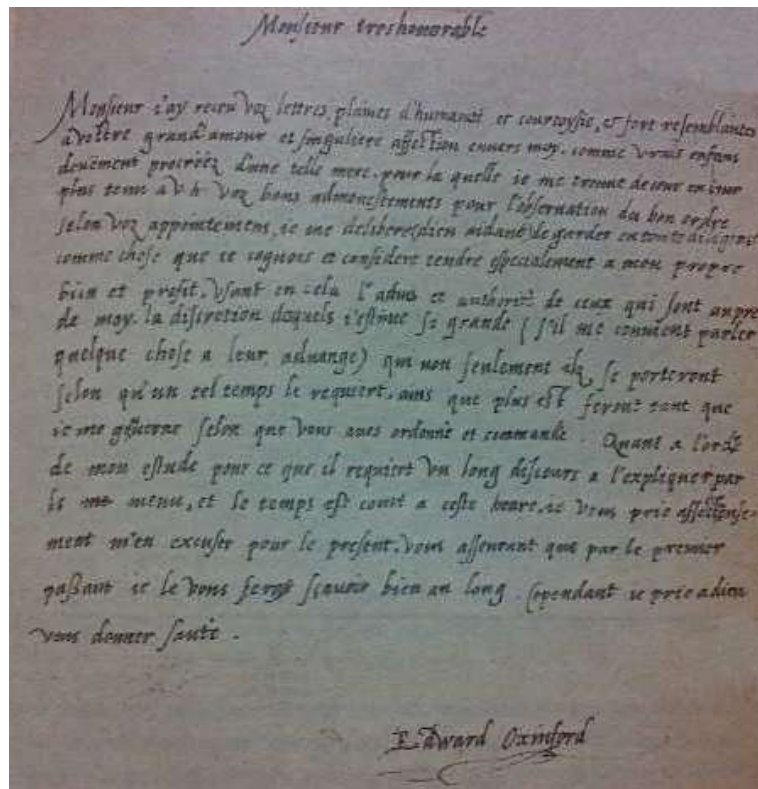 Monsieur treshonorable
Monsieur i'ay receu voz lettres, plaines d'humanite et courtoysie, et fort resemblantes
a vostre grand' amour et singuliere affection enuers moy. comme vrais enfans
deuëment procreéz d'une telle mere. pour la quelle ie me trouue de iour en iour
plus tenu a v. h. voz bons admonestements pour l'obseruation du bon ordre
selon voz appointemens, ie me delibere (dieu aidant) de garder en toute diligence
comme chose que ie cognois et considere tendre especialement a mon propre
bien et profit, vsant en celà l'aduis et authorité de ceux qui sont aupres
de moy. la discretion desquels i'estime si grande (s'il me conuient parler
quelque chose a leur aduange) qui non seulement ilz se porteront
selon qu'un tel temps le requiert, ains que plus est feront tant que
ie me gouuerne selon que vous aues ordonné et commandé. Quant a l'ordre
de mon estude pour ce que il requiert vn long discours a l'expliquer par
le menu, et le temps est court a ceste heure, ie vous prie affectueuse-
ment m'en excuser pour le present. vous asseurant que par le premier
passant ie le vous feray sçauoir bien au long. Cependant ie prie a dieu
vous donner santé.
Edward Oxinford